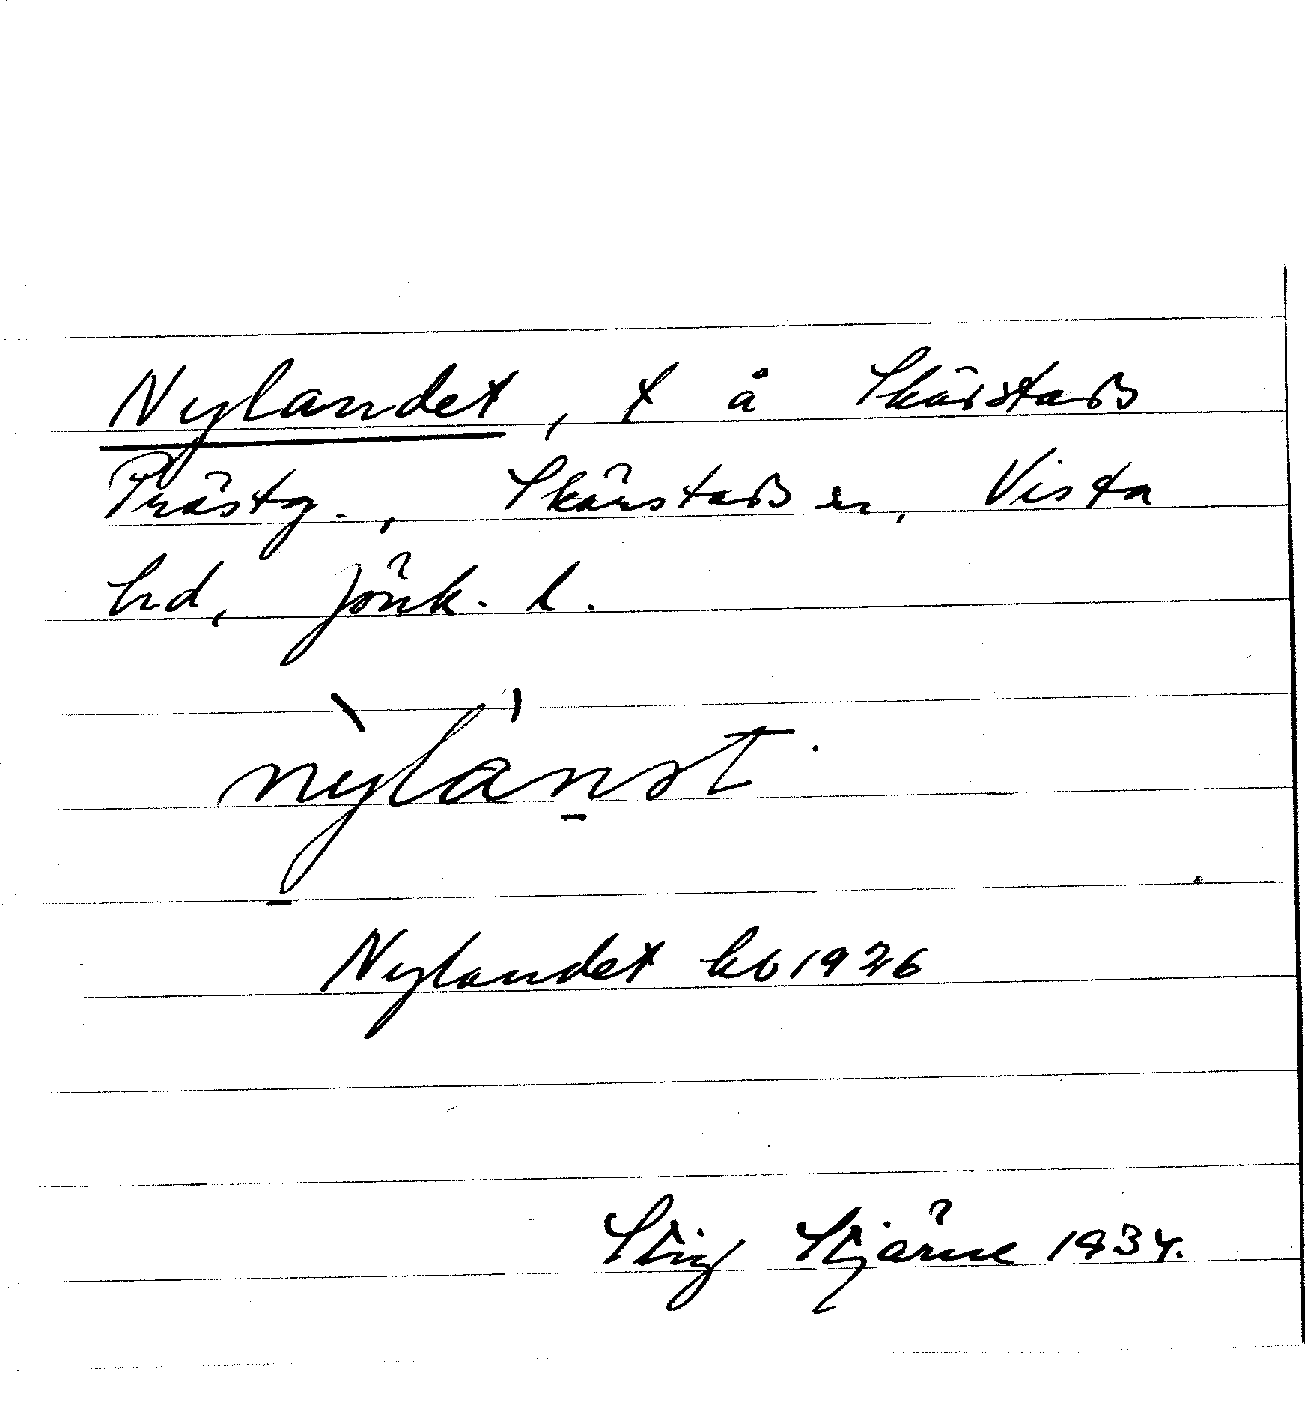 Nylandet, t å Skärstads
Prästg., Skärstads sn, Vista
hd, Jönk. l.
Nylandet kb 1926
Stig Stjärne 1934.